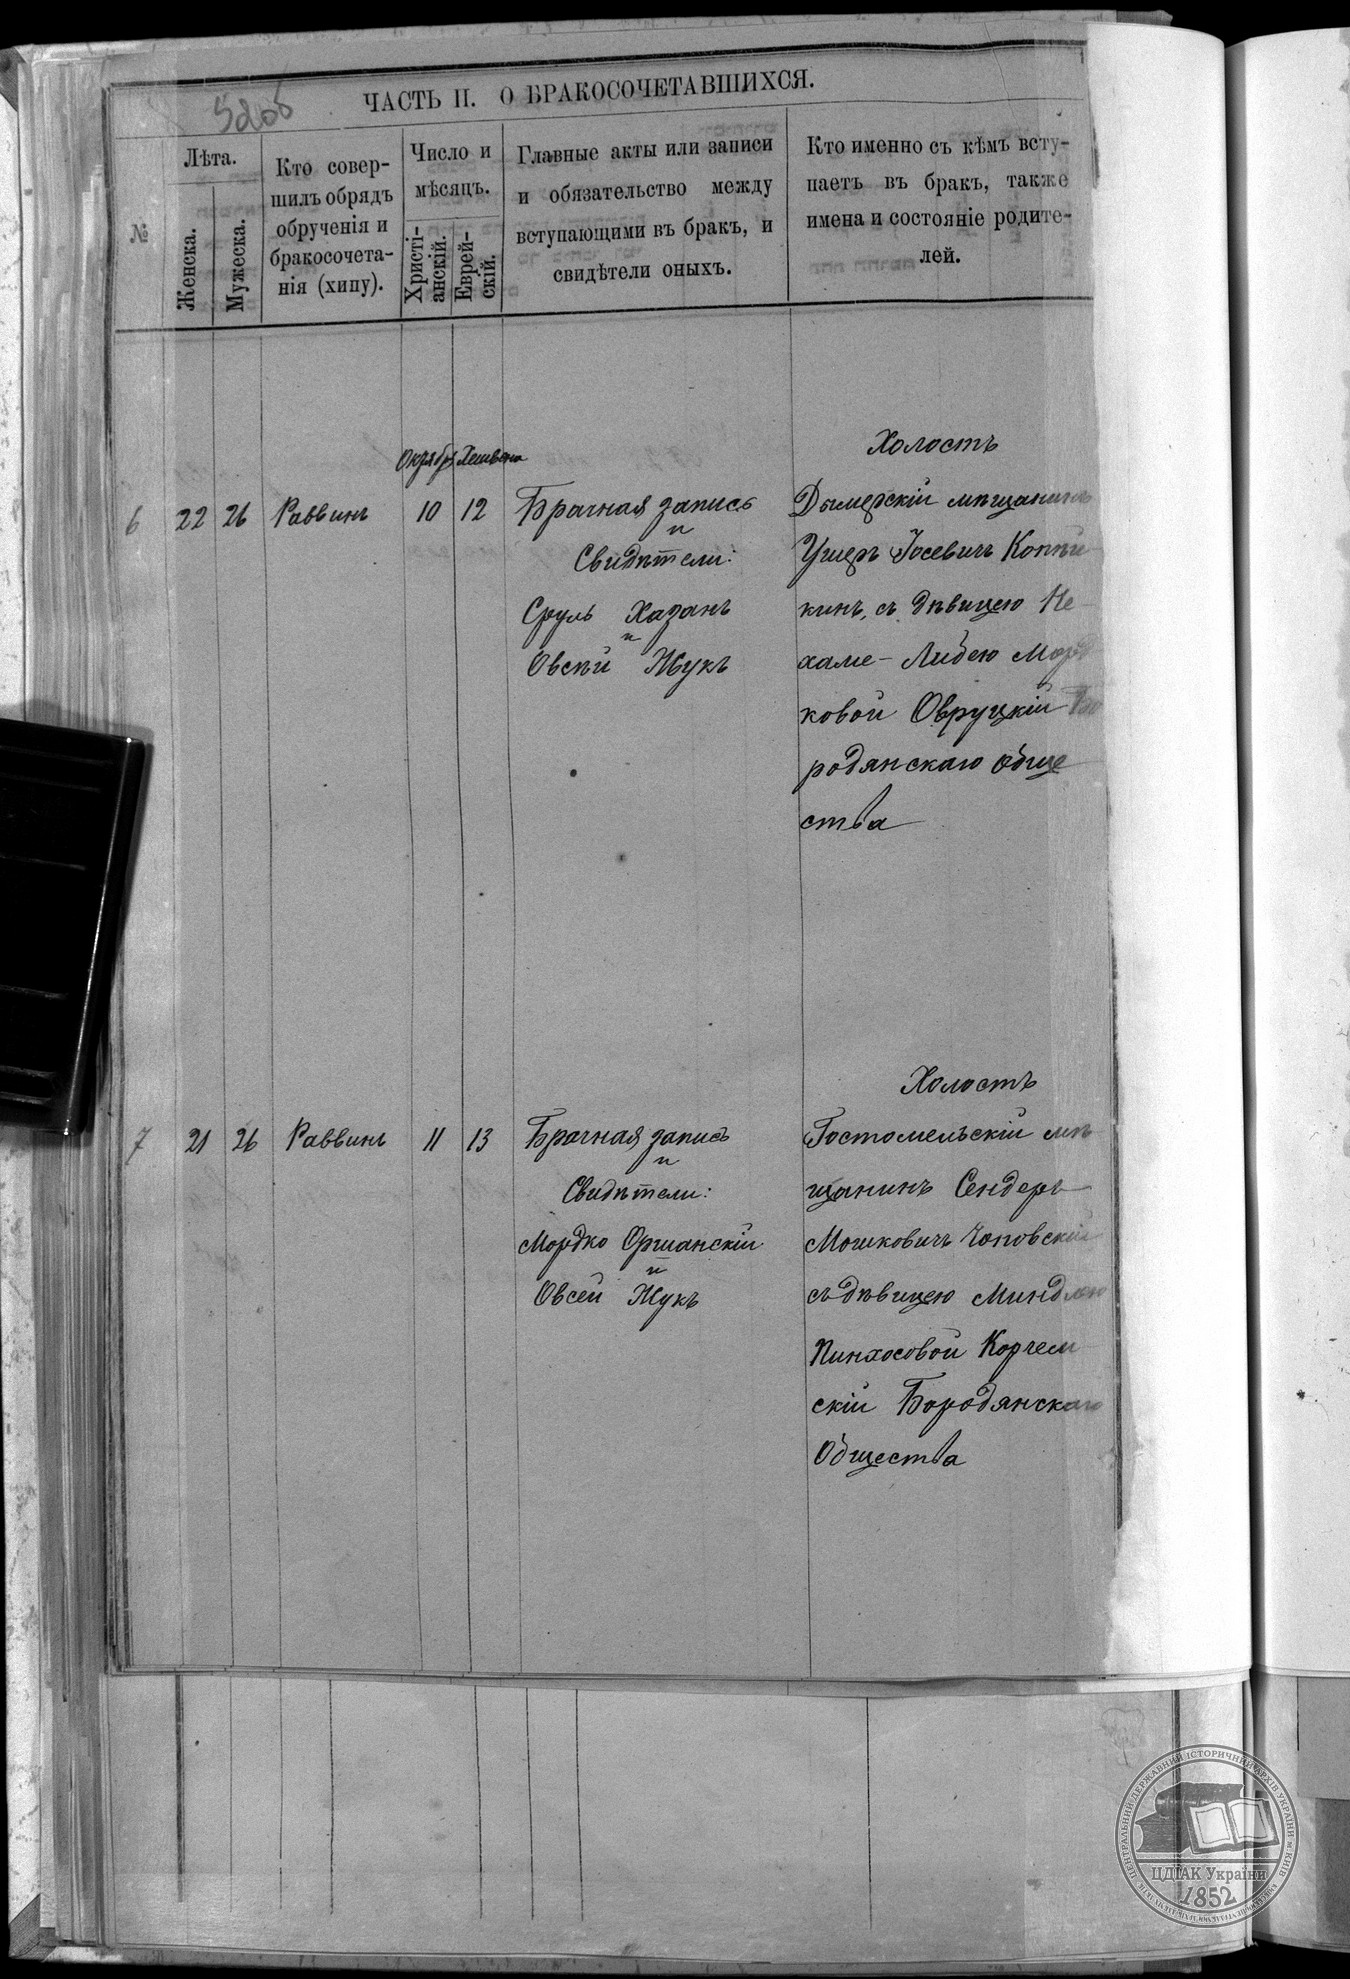 ЧАСТЬ II. О БРАКОСОЧЕТАВШИХСЯ.
№
Лѣта.
Женска.
Мужеска.
Кто совер-
шилъ обрядъ
обрученія и
бракосочета-
нія (хипу).
Число и
мѣсяцъ.
Христі-
анскій.
Еврей-
скій.
Главные акты или записи
и обязательство между
вступающими въ бракъ, и
свидѣтели оныхъ.
Кто именно съ кѣмъ всту-
паетъ въ бракъ, также
имена и состояніе родите-
лей.
Октября Хешвана
6 22 26 Раввинъ 10 12
Брачная запись
и
Свидѣтели:
Сруль Хазанъ
и
Овсѣй Жукъ
Холостъ
Дымерскій мѣщанинъ
Ушеръ Іосевичъ Коппи-
кинъ, съ дѣвицею Не-
хаме-Либею Морд
ковой Овруцкій Бо
родянскаго обще
ства
7 21 26 Раввинъ 11 13
Брачная запись
и
Свидѣтели:
Мордко Оршанскій
и
Овсей Жукъ
Холостъ
Гостомельскій мѣ
щанинъ Сендеръ
Мошковичъ Чоповскій
съ дѣвицею Миндлею
Пинхосовой Корчем
скій Бородянскаго
Общества
ЦЕНТРАЛЬНИЙ ДЕРЖАВНИЙ ІСТОРИЧНИЙ АРХІВ УКРАЇНИ м. КИЇВ
ЦДІАК України
1852